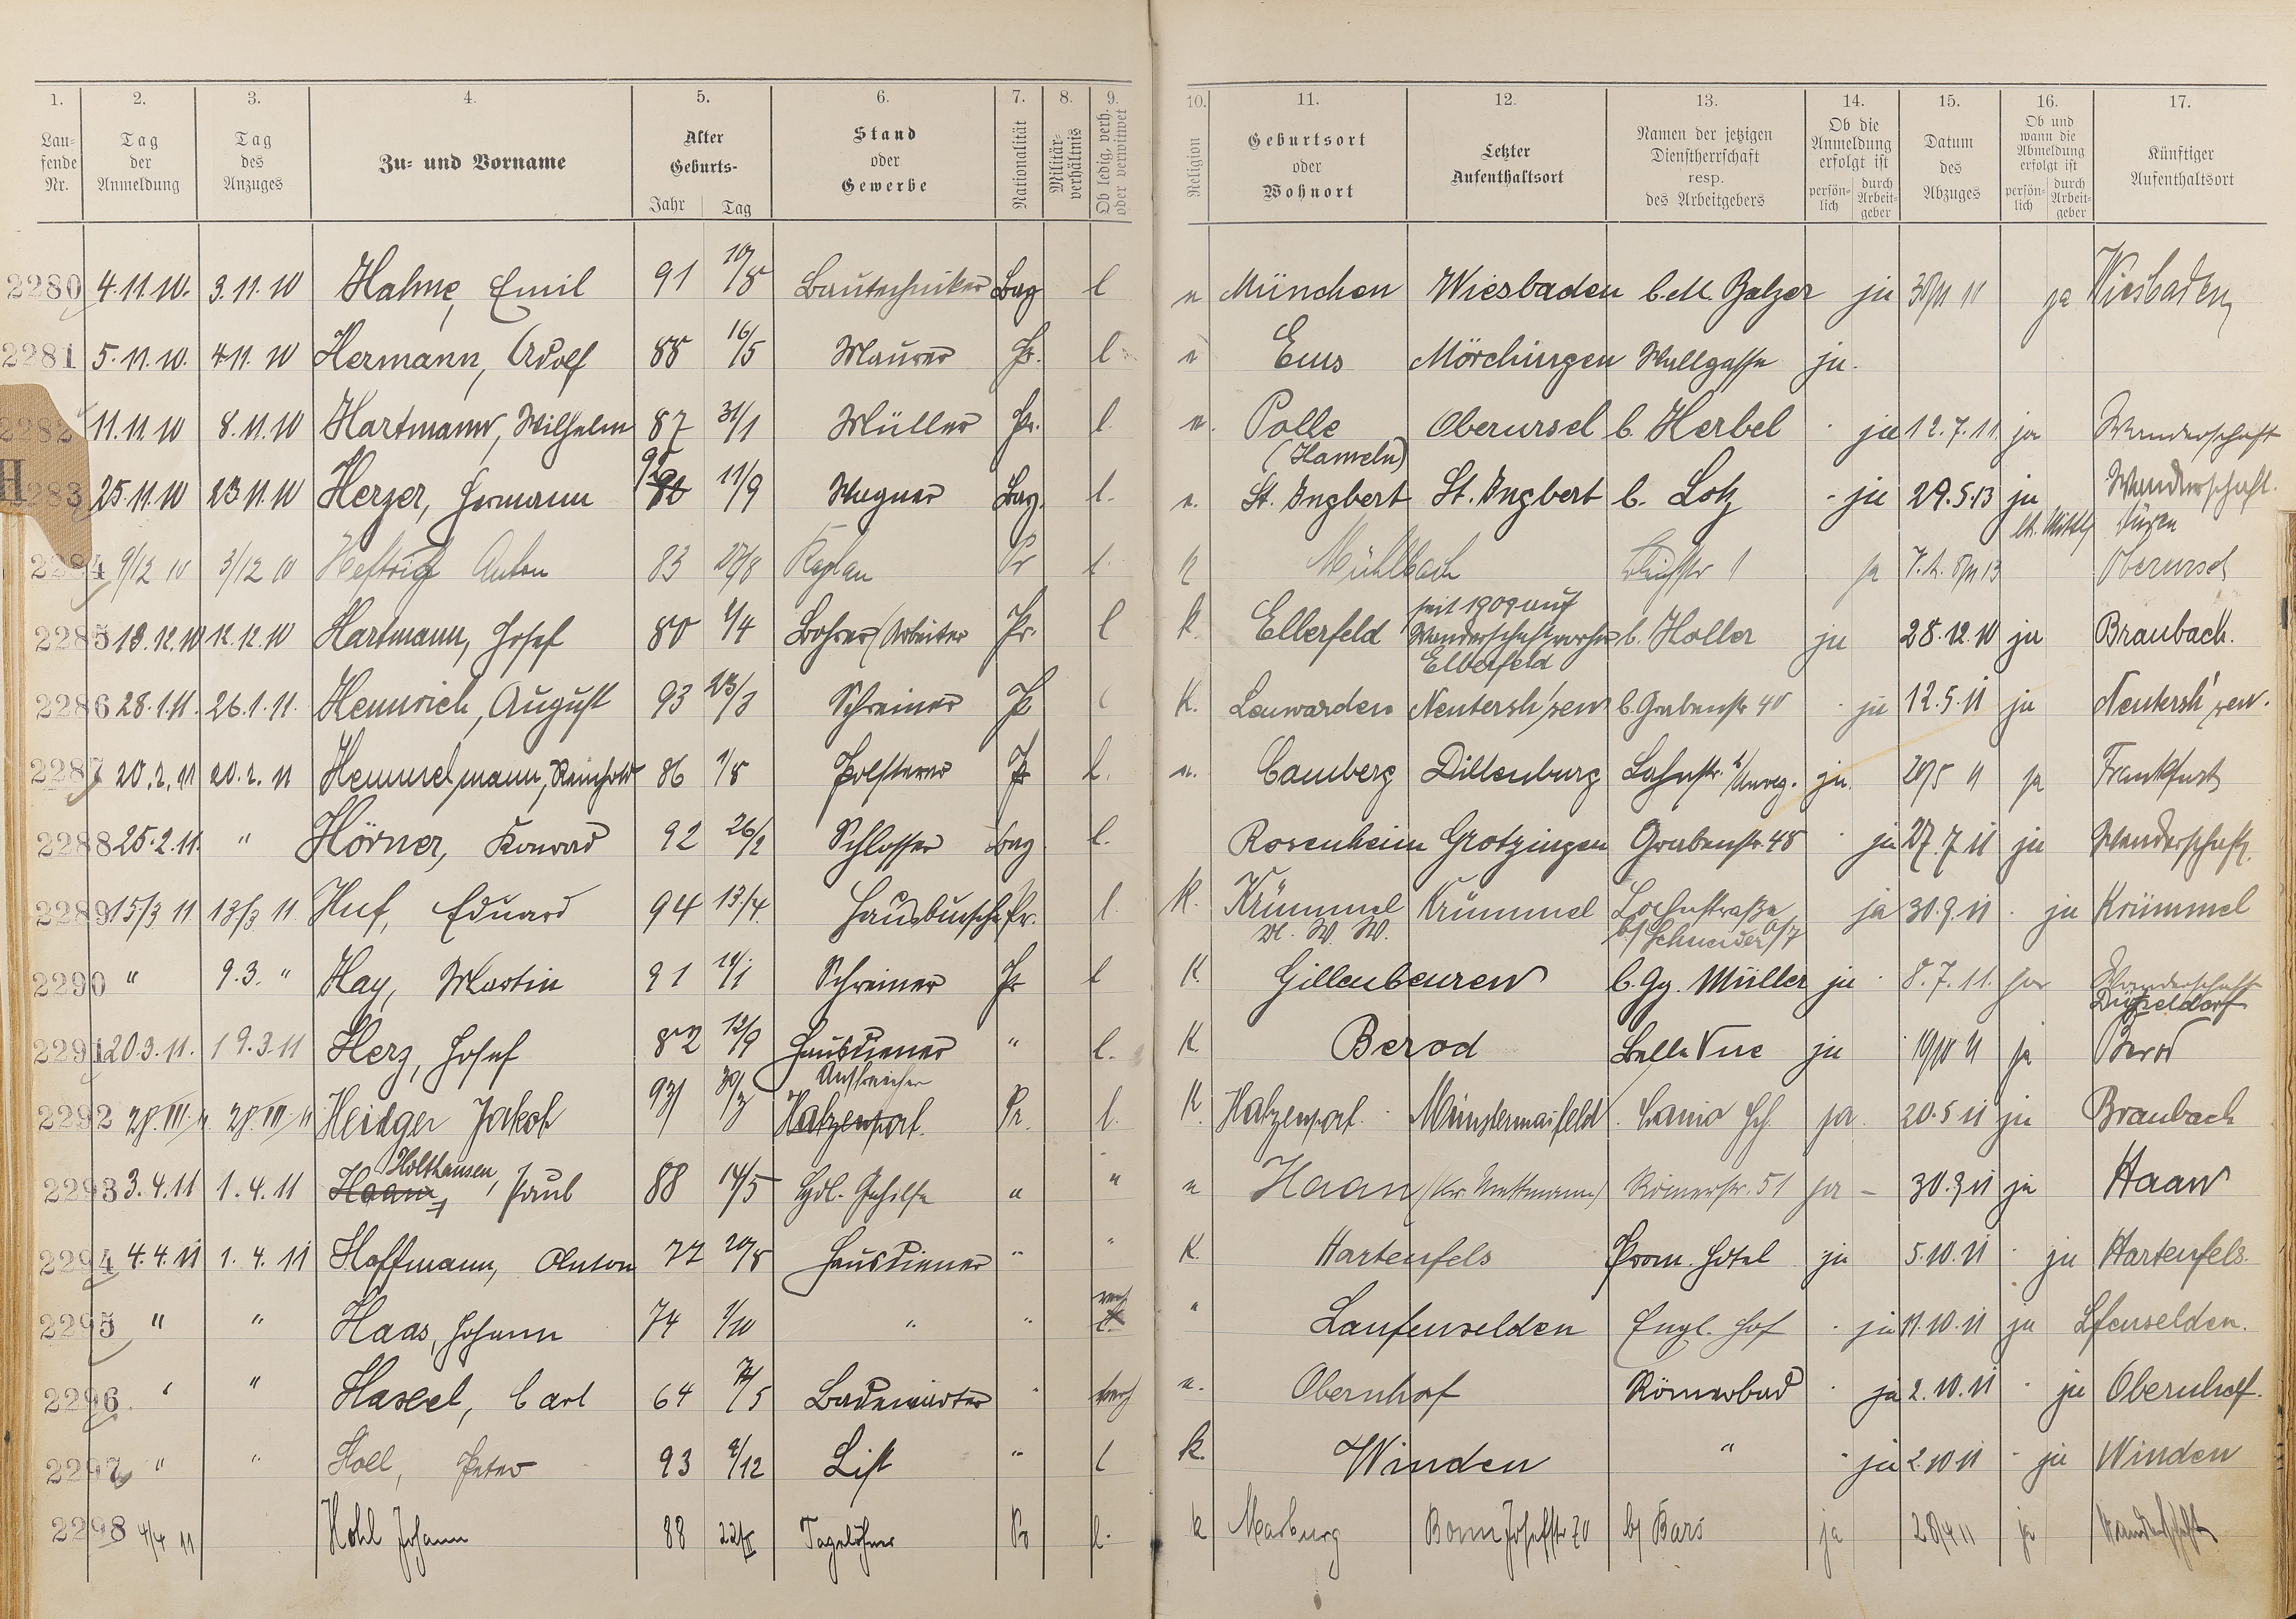 1. 2. 3. 4. 5. 6. 7. 8. 9. 10. 11. 12. 13. 14. 15. 16. 17.
Laufende Nr. Tag der Anmeldung Tag des Anzuges Zu- und Vorname Alter Geburts- Jahr Tag Stand oder Gewerbe Nationalität Militärverhältnis Ob ledig, verh. oder verwitwet Religion Geburtsort oder Wohnort Letzter Aufenthaltsort Namen der jetzigen Dienstherrschaft resp. des Arbeitgebers Ob die Anmeldung erfolgt ist persönlich durch Arbeitgeber Datum des Abzuges Ob und wann die Abmeldung erfolgt ist persönlich durch Arbeitgeber Künftiger Aufenthaltsort
2280 4.11.10. 3.11.10 Hahne, Emil 91 10/8 Bautechniker Bay l München Wiesbaden b. M. Balzer ja ja Wiesbaden
2281 5.11.10. 4.11.10 Hermann, Adolf 88 16/5 Maurer Pr. l Ems Mörchingen Wallgasse ja.
2282 11.11.10 8.11.10 Hartmann, Wilhelm 87 31/1 Müller Pr. l. Polle (Hameln) Oberursel b. Herbel ja 12.7.11. ja Wanderschaft
2283 25.11.10 23.11.10 Herzer, Hermann 11/9 Wagner Bay. l. St. Ingbert St. Ingbert b. Lotz ja 29.5.13 ja Wanderschaft.
2284 9/12 10 3/12 10 Anton 83 27/8 Kaplan Pr l. Mühlbach ja Oberursel
2285 13.12.10 12.12.10 Hartmann, Josef 80 Bohrer (Arbeiter Pr. l K. Elberfeld seit 1909 auf Wanderschaft vorher Elberfeld b. Holler ja 28.12.10 ja Braubach.
2286 28.1.11. 26.1.11. Hennrich, August 93 23/3 Schreiner Pr K. Leuwarden Neutersh'sen b. Grabenstr. 40 ja 12.5.11 ja Neutersh'sen.
2287 20.2.11 20.2.11 Hemmelmann, Reinhold 86 1/8 Polsterer Pr l. Camberg Dillenburg Lahnstr. ja. ja Frankfurt
2288 25.2.11. " Hörner, Konrad 92 26/2 Schlosser Bay l. Rosenheim Grotzingen Grabenstr. 48 ja 27.7.11 ja Wanderschaft.
2289 15/3 11 13/3 11 Huf, Eduard 94 13/4. Hausbursche Pr. l. K. Krümmel Krümmel Lahnstraße b/ Schneider ja 30.9.11 ja Krümmel
2290 " 9.3. " Hay, Martin 91 Schreiner Pr l K. Gillenbeuren b. Gg. Müller ja 8.7.11. ja Wanderschaft Düsseldorf
2291 20.3.11. 19.3.11 Herz, Josef 82 12/9 Hausdiener " l. K. Berod Belle Vue ja 19/10 11 ja Berod
2292 Heidger Jakob 93 Anstreicher Hatzenport. Pr. l. K Hatzenport. Münstermaifeld ja 20.5.11 ja Braubach
2293 3.4.11 1.4.11 Haan, Holthausen, Paul 88 14/5 Hdl. Gehilfe " " Haan (Kr. Mettmann) Römerstr. 51 ja – 30.9.11 ja Haan
2294 4.4.11 1.4.11 Hoffmann, Anton 77 20/8 Hausdiener " " K. Hartenfels Prom. Hotel ja 5.10.11 ja Hartenfels.
2295 " " Haas, Johann 74 1/10 " " verh " Laufenselden Engl. Hof ja 11.10.11 ja Lfenselden.
2296 " " Hassel, Carl 64 Badewärter " verh Obernhof Römerbad ja 2.10.11 ja Obernhof.
2297 " " Holl, Peter 93 Lift " l k. Winden " ja 2.10.11 ja Winden
2298 4/4 11 Hohl Johann 88 Tagelöhner Pr l. k Marburg Bonn Josefstr. 70 b/ Bars ja ja Wanderschaft